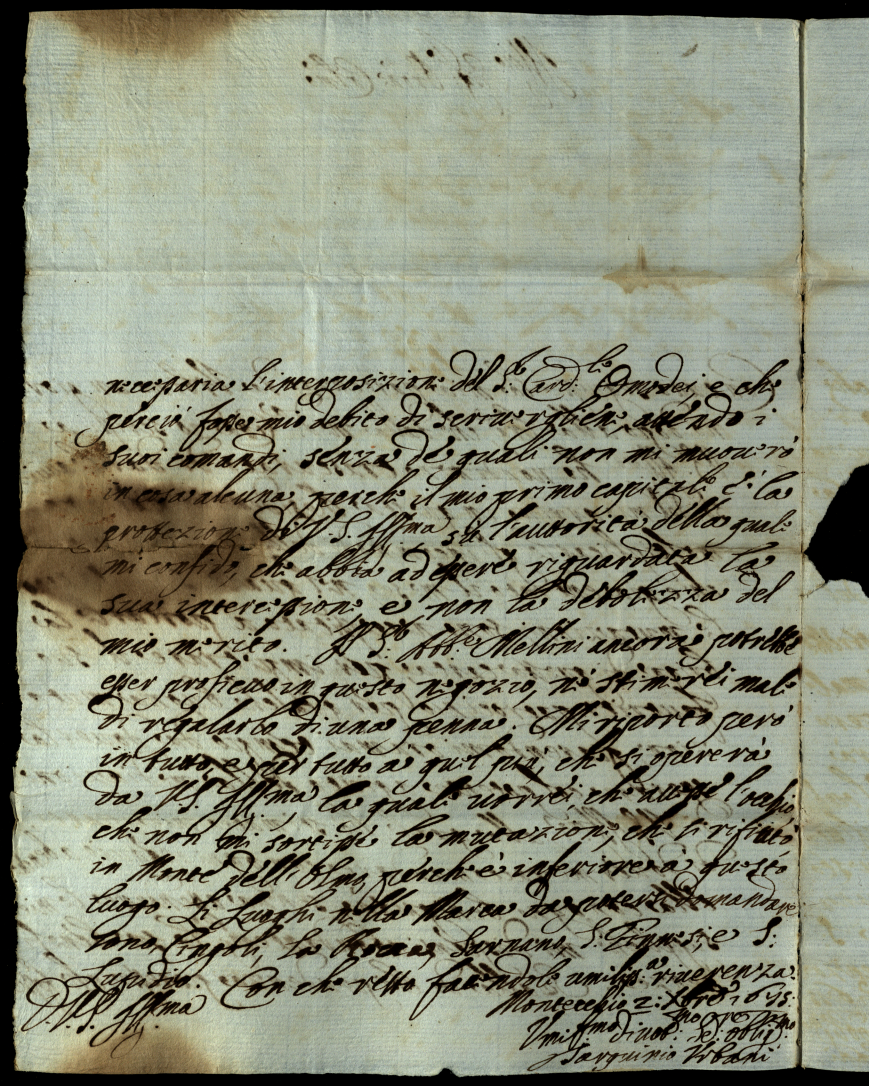 necessaria l'interposizione del S.r Card.le Omodei, e che
perciò fosse mio debito di scriuergliene, attendo i
suoi comandi, senza de quali non mi mouerò
in cosa alcuna perche il mio primo capitale è la
protezione di V.S. Ill.ma su l'autorità della quale
mi confido, che abbia ad essere riguardata la
sua intercessione e non la debolezza del
mio merito. Il S.r Abb.e Mellini ancora potrebbe
esser proficuo in questo negozio, ne stimerei male
di regalarlo di una penna. Mi riporto però
in tutto e per tutto a quel più, che si opererà
da V.S. Ill.ma la quale uorrei che
che non mi sortisse la mutazione, che si rifiutò
in Monte dell'Olmo, perche è inferiore a questo
luogo. Li Luoghi nella Marca da potersi domandare
sono Cingoli, la Rocca, Sarnano, S. Ginesi, e S.
Lupidio. Con che resto facendole umiliss.a riuerenza
D. V.S. Ill.ma
Montecchio 2: Xbre
Vmiliss.mo diuot.mo Se: oblig.mo
Tarquinio Vrbani